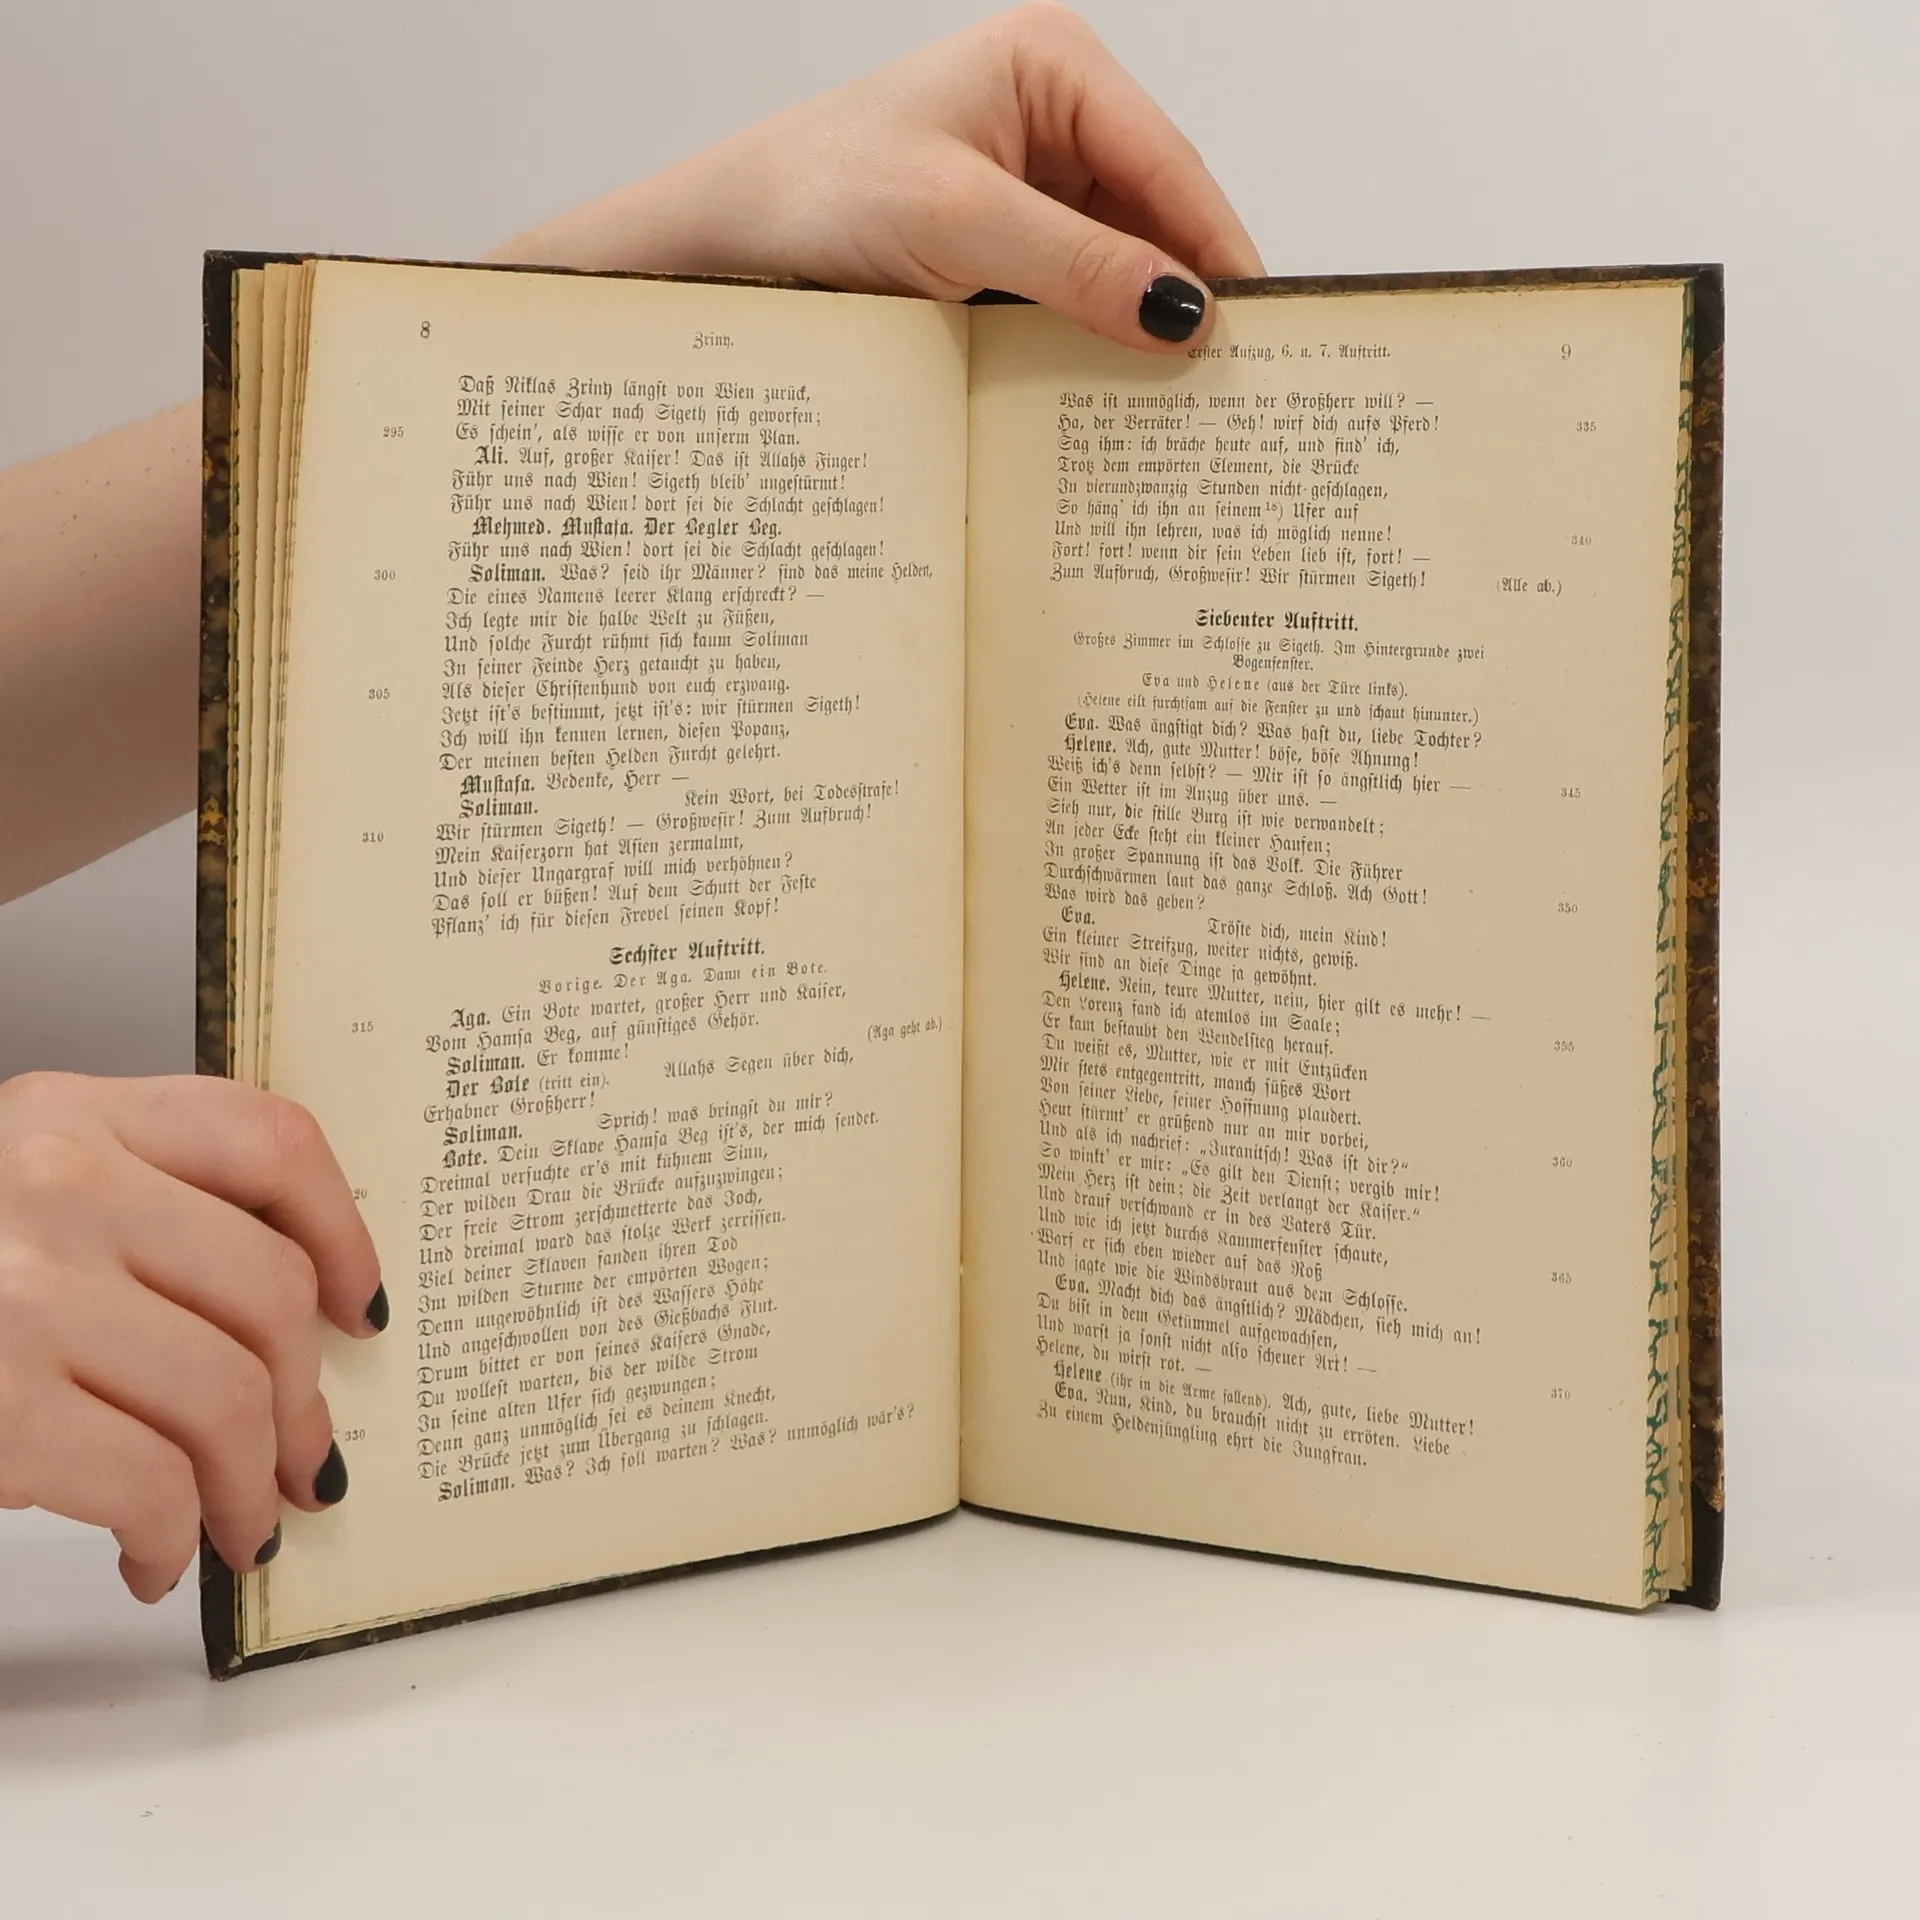 8
Zriny.
Daß Niklas Zriny längst von Wien zurück,
Mit seiner Schar nach Sigeth sich geworfen;
295 Es schein', als wisse er von unserm Plan.
Ali. Auf, großer Kaiser! Das ist Allahs Finger!
Führ uns nach Wien! Sigeth bleib' ungestürmt!
Führ uns nach Wien! dort sei die Schlacht geschlagen!
Mehmed. Mustafa. Der Begler Beg.
Führ uns nach Wien! dort sei die Schlacht geschlagen!
300 Soliman. Was? seid ihr Männer? sind das meine Helden,
Die eines Namens leerer Klang erschreckt? —
Ich legte mir die halbe Welt zu Füßen,
Und solche Furcht rühmt sich kaum Soliman
In seiner Feinde Herz getaucht zu haben,
305 Als dieser Christenhund von euch erzwang.
Jetzt ist's bestimmt, jetzt ist's: wir stürmen Sigeth!
Ich will ihn kennen lernen, diesen Popanz,
Der meinen besten Helden Furcht gelehrt.
Mustafa. Bedenke, Herr —
Soliman. Kein Wort, bei Todesstrafe!
310 Wir stürmen Sigeth! — Großwesir! Zum Aufbruch!
Mein Kaiserzorn hat Asien zermalmt,
Und dieser Ungargraf will mich verhöhnen?
Das soll er büßen! Auf dem Schutt der Feste
Pflanz' ich für diesen Frevel seinen Kopf!
Sechster Auftritt.
Vorige. Der Aga. Dann ein Bote.
Aga. Ein Bote wartet, großer Herr und Kaiser,
315 Vom Hamsa Beg, auf günstiges Gehör.
Soliman. Er komme! (Aga geht ab.)
Der Bote (tritt ein). Allahs Segen über dich,
Erhabner Großherr!
Soliman. Sprich! was bringst du mir?
Bote. Dein Sklave Hamsa Beg ist's, der mich sendet.
Dreimal versuchte er's mit kühnem Sinn,
20 Der wilden Drau die Brücke aufzuzwingen;
Der freie Strom zerschmetterte das Joch,
Und dreimal ward das stolze Werk zerrissen.
Viel deiner Sklaven fanden ihren Tod
Im wilden Sturme der empörten Wogen;
Denn ungewöhnlich ist des Wassers Höhe
Und angeschwollen von des Gießbachs Flut.
Drum bittet er von seines Kaisers Gnade,
Du wollest warten, bis der wilde Strom
In seine alten Ufer sich gezwungen;
330 Denn ganz unmöglich sei es deinem Knecht,
Die Brücke jetzt zum Übergang zu schlagen.
Soliman. Was? Ich soll warten? Was? unmöglich wär's?
Erster Aufzug, 6. u. 7. Auftritt.
9
Was ist unmöglich, wenn der Großherr will? —
Ha, der Verräter! — Geh! wirf dich aufs Pferd! 335
Sag ihm: ich bräche heute auf, und find' ich,
Trotz dem empörten Element, die Brücke
In vierundzwanzig Stunden nicht geschlagen,
So häng' ich ihn an seinem ¹⁸) Ufer auf
Und will ihn lehren, was ich möglich nenne! 340
Fort! fort! wenn dir sein Leben lieb ist, fort! —
Zum Aufbruch, Großwesir! Wir stürmen Sigeth! (Alle ab.)
Siebenter Auftritt.
Großes Zimmer im Schlosse zu Sigeth. Im Hintergrunde zwei
Bogenfenster.
Eva und Helene (aus der Türe links).
(Helene eilt furchtsam auf die Fenster zu und schaut hinunter.)
Eva. Was ängstigt dich? Was hast du, liebe Tochter?
Helene. Ach, gute Mutter! böse, böse Ahnung!
Weiß ich's denn selbst? — Mir ist so ängstlich hier — 345
Ein Wetter ist im Anzug über uns. —
Sieh nur, die stille Burg ist wie verwandelt;
An jeder Ecke steht ein kleiner Haufen;
In großer Spannung ist das Volk. Die Führer
Durchschwärmen laut das ganze Schloß. Ach Gott! 350
Was wird das geben?
Eva. Tröste dich, mein Kind!
Ein kleiner Streifzug, weiter nichts, gewiß.
Wir sind an diese Dinge ja gewöhnt.
Helene. Nein, teure Mutter, nein, hier gilt es mehr! —
Den Lorenz fand ich atemlos im Saale;
Er kam bestaubt den Wendelstieg herauf. 355
Du weißt es, Mutter, wie er mit Entzücken
Mir stets entgegentritt, manch süßes Wort
Von seiner Liebe, seiner Hoffnung plaudert.
Heut stürmt' er grüßend nur an mir vorbei,
Und als ich nachrief: „Juranitsch! Was ist dir?“ 360
So winkt' er mir: „Es gilt den Dienst; vergib mir!
Mein Herz ist dein; die Zeit verlangt der Kaiser.“
Und drauf verschwand er in des Vaters Tür.
Und wie ich jetzt durchs Kammerfenster schaute,
Warf er sich eben wieder auf das Roß 365
Und jagte wie die Windsbraut aus dem Schlosse.
Eva. Macht dich das ängstlich? Mädchen, sieh mich an!
Du bist in dem Getümmel aufgewachsen,
Und warst ja sonst nicht also scheuer Art! —
Helene, du wirst rot. — 370
Helene (ihr in die Arme fallend). Ach, gute, liebe Mutter!
Eva. Nun, Kind, du brauchst nicht zu erröten. Liebe
Zu einem Heldenjüngling ehrt die Jungfrau.